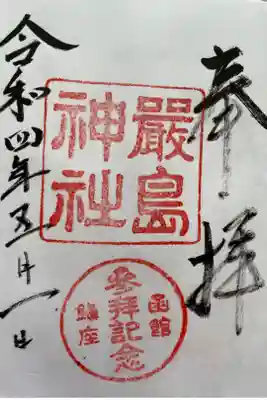 奉拝
嚴島
神社
函館
参拜記念
鎮座
令和四年五月一日